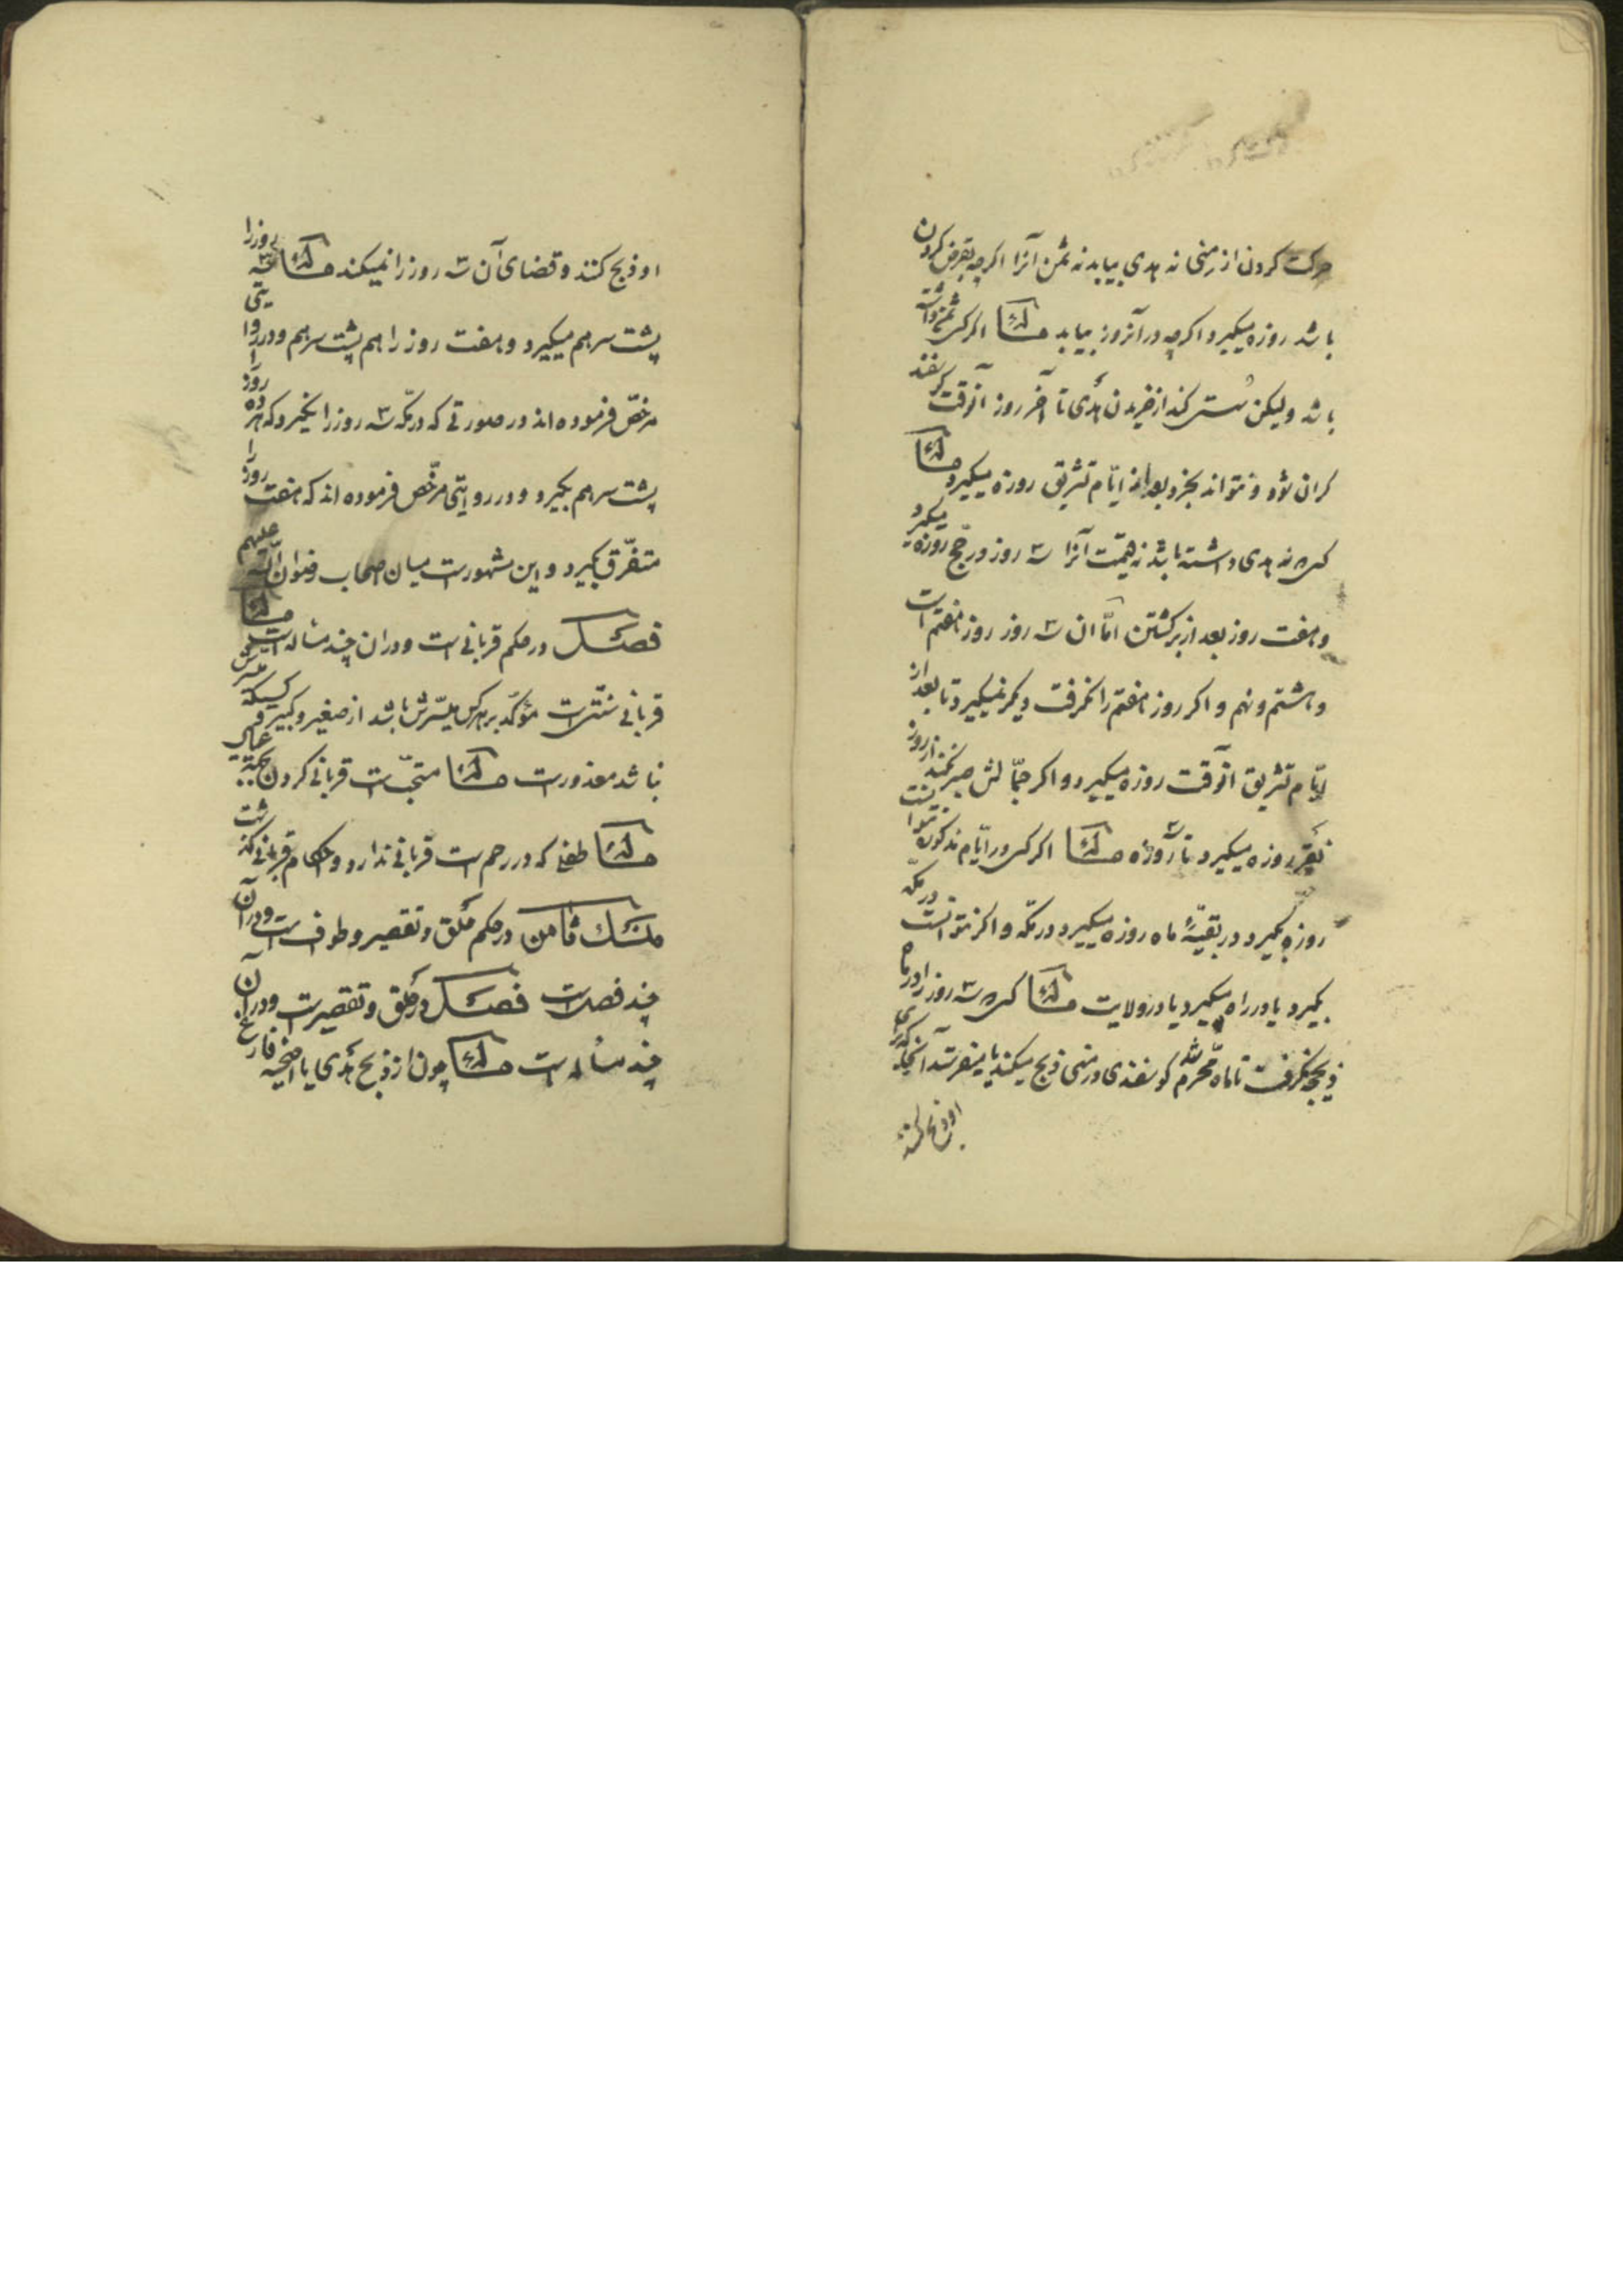 حرکت کردن از منی نه هدی بیابد نه ثمن آنرا اگرچه بقرض کردن
باشد روزه میگیرد و اگرچه در آنروز بیابد مسئله اگر کسی ثمن داشته
باشد ولیکن سستی کند از خریدن هدی تا آخر روز آنوقت گوسفند
گران شود و نتواند بخرد بعد از ایّام تشریق روزه میگیرد مسئله
کسی که نه هدی داشته باشد نه قیمت آنرا سه روز در حج روزه میگیرد
و هفت روز بعد از برگشتن امّا ان سه روز روز هفتم است
و هشتم و نهم و اگر روز هفتم را نگرفت دیگر نمیگیرد تا بعد از
ایّام تشریق آنوقت روزه میگیرد و اگر جمّالش صبر نمیکند از روز
نفر روزه میگیرد تا سه روز مسئله اگر کسی در ایّام مذکوره نتوانست
روزه بگیرد در بقیّهٔ ماه روزه میگیرد در مکّه و اگر نتوانست در مکه
بگیرد یا در راه میگیرد یا در ولایت مسئله کسی که سه روز را در ماه
ذیحجه نگرفت تا ماه محرّم شد گوسفندی در منی ذبح میکند یا میفرستد آنجا که برای
او ذبح کنند
او ذبح کنند و قضای آن سه روز را نمیکند مسئله سه روز را
پشت سر هم میگیرد و هفت روز را هم پشت سر هم و در روایتی
مرخّص فرموده اند در صورتی که در مکّه سه روز را نگیرد که هر ده روز را
پشت سر هم بگیرد و در روایتی مرخّص فرموده اند که هفت روز را
متفرّق بگیرد و این مشهور است میان اصحاب رضوان اللّه علیهم
فصل در حکم قربانی است و در ان چند مسأله است مسئله
قربانی سنّتی است مؤکّد بر هر کس میسّرش باشد از صغیر و کبیر و کسیکه میسّرش
نباشد معذور است مسئله مستحبّ است قربانی کردن بجهة عیال
مسئله طفلی که در رحم است قربانی ندارد و احکام قربانی گذشت
منسک ثامن در حکم حلق و تقصیر و طواف است و در آن
چند فصل است فصل در حلق و تقصیر است و در آن
چند مسأله است مسئله چون از ذبح هدی یا اضحیه فارغ